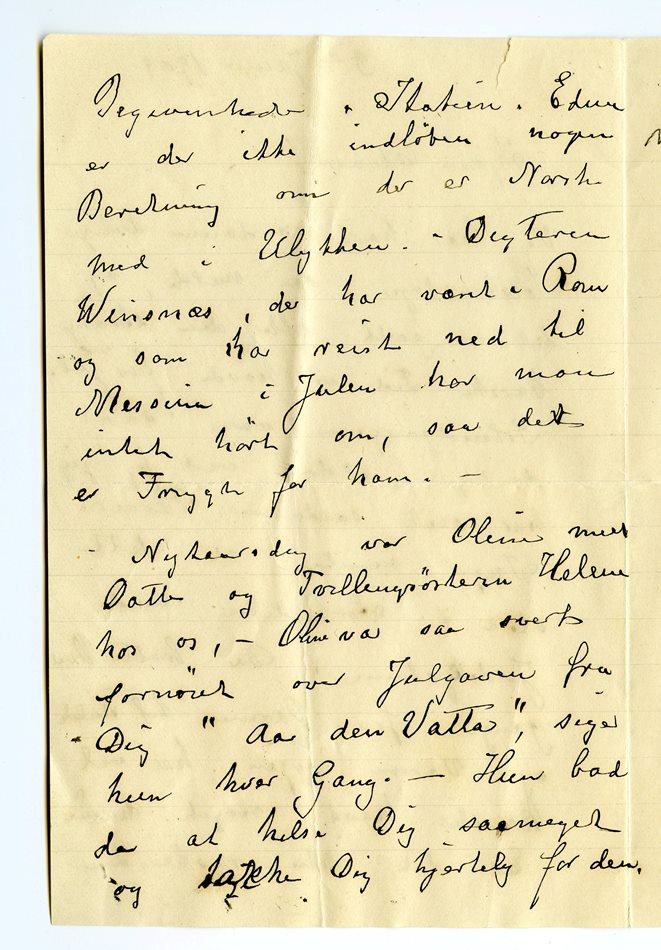 Begivenheder i Italien. Endnu
er der ikke indløben nogen
Beretning om der er Norske
med i Ulykken. - Digteren
Winsnæs, der har været i Rom
og som har reist ned til
Messina i Julen har man
intet hørt om, saa det
er Frygt for ham. -
- Nytaarsdag var Oline med
Datte og Tvillingsösteren Helene
hos os, - Oline va saa svert
fornöiet over Julgaven fra
Dig " Aa den Vatta", siger
hun hver Gang. - Hun bad
da at helse Dig saameget
og takke Dig hjertelig for den.